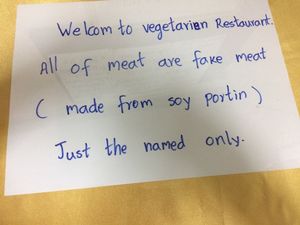 Welcom to vegetarian Restaurant.
All of meat are fake meat
( made from soy portin )
Just the named only.